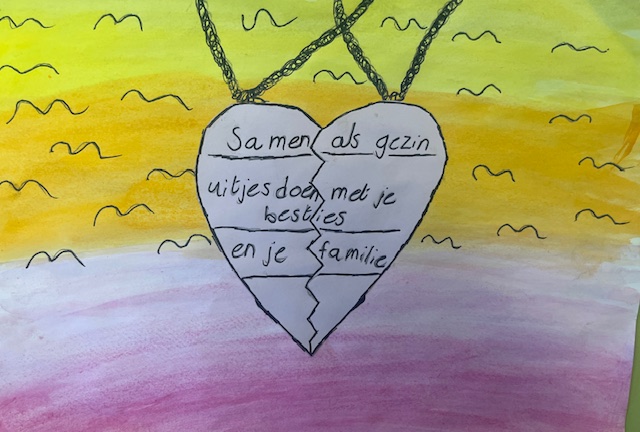 Samen als gezin
uitjes doen met je
besties
en je familie